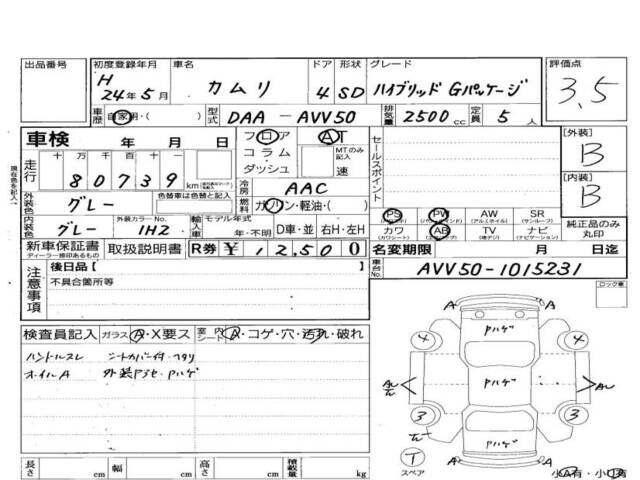 出品番号 初度登録年月 車名 ドア 形状 グレード 評価点
H 24年 5月 カムリ 4 SD ハイブリッド Gパッケージ 3.5
車歴 自家用・( ) 型式 DAA-AVV50 排気量 2500 cc 定員 5 人
車検 年 月 日 フロア AT セールスポイント [外装] B
コラム・ダッシュ MTのみ記入 速
走行 十 万 千 百 十 一 80739 km
現在色を記入
冷房 AAC [内装] B
外装色 グレー 色替車は色替と記入 燃料 ガソリン・軽油・( )
内装色 グレー 外装カラーNo. 1H2 輸入車 モデル年式 年・不明 D車・並 右H・左H
PS PW AW (アルミホイル) SR (サンルーフ)
カワ (カワシート) AB TV (地デジ) ナビ (ナビゲーション) 純正品のみ丸印
新車保証書 ディーラー捺印あるもの 取扱説明書 R券 ¥12,500 名変期限 月 日迄
注意事項 後日品[ ] 車台No. AVV50-1015231
不具合箇所等 ロック車
検査員記入 ガラス A・X要ス 室内シート A・コゲ・穴・汚れ・破れ
ハンドルスレ シートカバー付・ヘタリ
オイルA 外装Pラセ・Pハゲ
A A
Pハゲ
4 4
Pハゲ
3 3
Pハゲ
T スペア A A
長さ cm 幅 cm 高さ cm 積載量 kg 小A有・小U有